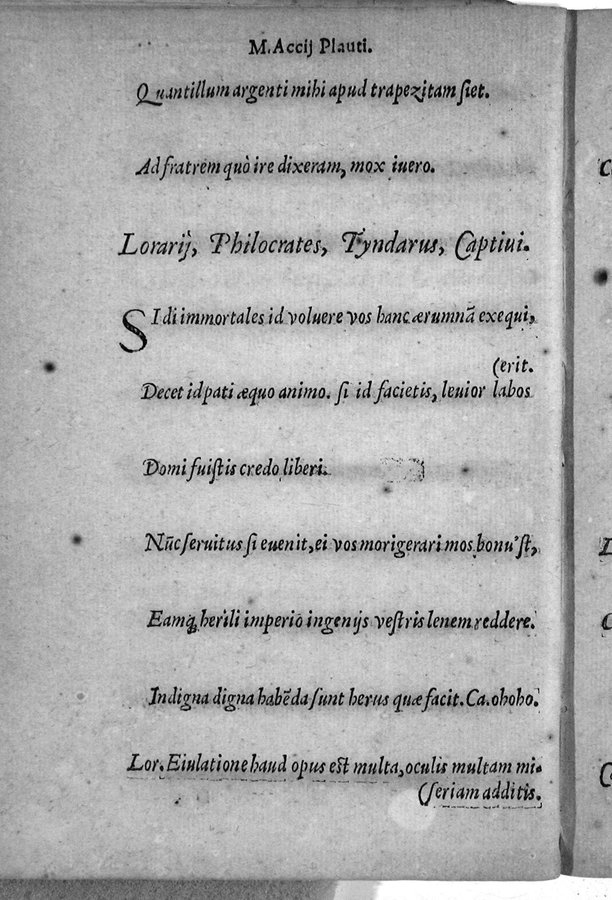 M. Accij Plauti.
Quantillum argenti mihi apud trapezitam ſiet.
Ad fratrem quò ire dixeram, mox iuero.
Lorarij, Philocrates, Tyndarus, Captiui.
SI di immortales id voluere vos hanc ærumnā exequi,
(erit.
Decet id pati æquo animo. ſi id facietis, leuior labos
Domi fuiſtis credo liberi.
Nūc ſeruitus ſi euenit, ei vos morigerari mos bonu'ſt,
Eamq; herili imperio ingenijs veſtris lenem reddere.
Indigna digna habēda ſunt herus quæ facit. Ca. oh oho.
Lor. Eiulatione haud opus eſt multa, oculis multam mi-
(ſeriam additis.
C
L
C
C